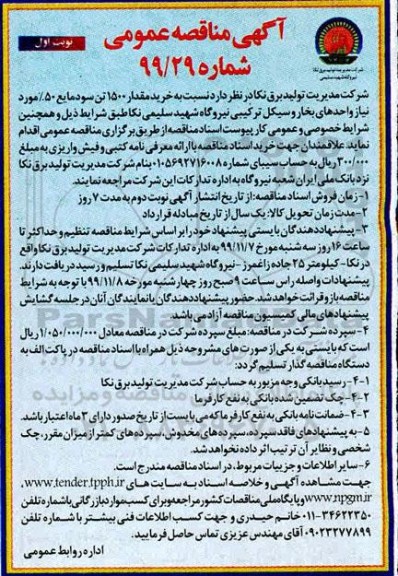 آگهی مناقصه عمومی
شماره ۹۹/۲۹
نوبت اول
شرکت مدیریت تولید برق نکا
نیروگاه شهید سلیمی
شرکت مدیریت تولید برق نکا در نظر دارد نسبت به خرید مقدار ۱۵۰۰ تن سود مایع ۵۰٪ مورد
نیاز واحدهای بخار و سیکل ترکیبی نیروگاه شهید سلیمی نکا طبق شرایط ذیل و همچنین
شرایط خصوصی و عمومی کار پیوست اسناد مناقصه از طریق برگزاری مناقصه عمومی اقدام
نماید. علاقمندان جهت خرید اسناد مناقصه با ارائه معرفی نامه کتبی و فیش واریزی به مبلغ
۳۰۰/۰۰۰ ریال به حساب سیبای شماره ۰۱۰۵۶۹۲۷۱۶۰۰۸ بنام شرکت مدیریت تولید برق نکا
نزد بانک ملی ایران شعبه نیروگاه به اداره تدارکات این شرکت مراجعه نمایند.
۱- زمان فروش اسناد مناقصه: از تاریخ انتشار آگهی نوبت دوم به مدت ۷ روز
۲- مدت زمان تحویل کالا: یک سال از تاریخ مبادله قرارداد
۳- پیشنهاددهندگان بایستی پیشنهاد خود را بر اساس شرایط مناقصه تنظیم و حداکثر تا
ساعت ۱۶ روز سه شنبه مورخ ۹۹/۱۱/۷ به اداره تدارکات شرکت مدیریت تولید برق نکا واقع
در نکا- کیلومتر ۲۵ جاده زاغمرز - نیروگاه شهید سلیمی نکا تسلیم و رسید دریافت دارند.
پیشنهادات واصله راس ساعت ۹ صبح روز چهارشنبه مورخه ۹۹/۱۱/۸ با توجه به شرایط
مناقصه باز و قرائت خواهد شد. حضور پیشنهاددهندگان یا نمایندگان آنان در جلسه گشایش
پیشنهادهای مالی کمیسیون مناقصه آزاد می باشد.
۴- سپرده شرکت در مناقصه: مبلغ سپرده شرکت در مناقصه معادل ۱/۰۵۰/۰۰۰/۰۰۰ ریال
است که بایستی به یکی از صورت های مشروحه ذیل همراه با اسناد مناقصه در پاکت الف به
دستگاه مناقصه گذار تسلیم گردد:
۴-۱- رسید بانکی وجه مزبور به حساب شرکت مدیریت تولید برق نکا
۴-۲- چک تضمین شده بانکی به نفع کارفرما
۴-۳- ضمانت نامه بانکی به نفع کارفرما که می بایست از تاریخ صدور دارای ۳ ماه اعتبار باشد.
۵- به پیشنهادهای فاقد سپرده، سپرده های مخدوش، سپرده های کمتر از میزان مقرر، چک
شخصی و نظایر آن ترتیب اثر داده نخواهد شد.
۶- سایر اطلاعات و جزییات مربوط، در اسناد مناقصه مندرج است.
جهت مشاهده آگهی و خلاصه اسناد به سایت های www.tender.tpph.ir،
www.npgm.ir و پایگاه ملی مناقصات کشور مراجعه و برای کسب موارد بازرگانی با شماره تلفن
۰۱۱-۳۴۶۲۲۳۵۰ خانم حیدری و جهت کسب اطلاعات فنی بیشتر با شماره تلفن
۰۹۰۲۳۲۷۷۸۹۹ آقای مهندس عزیزی تماس حاصل فرمایید.
اداره روابط عمومی